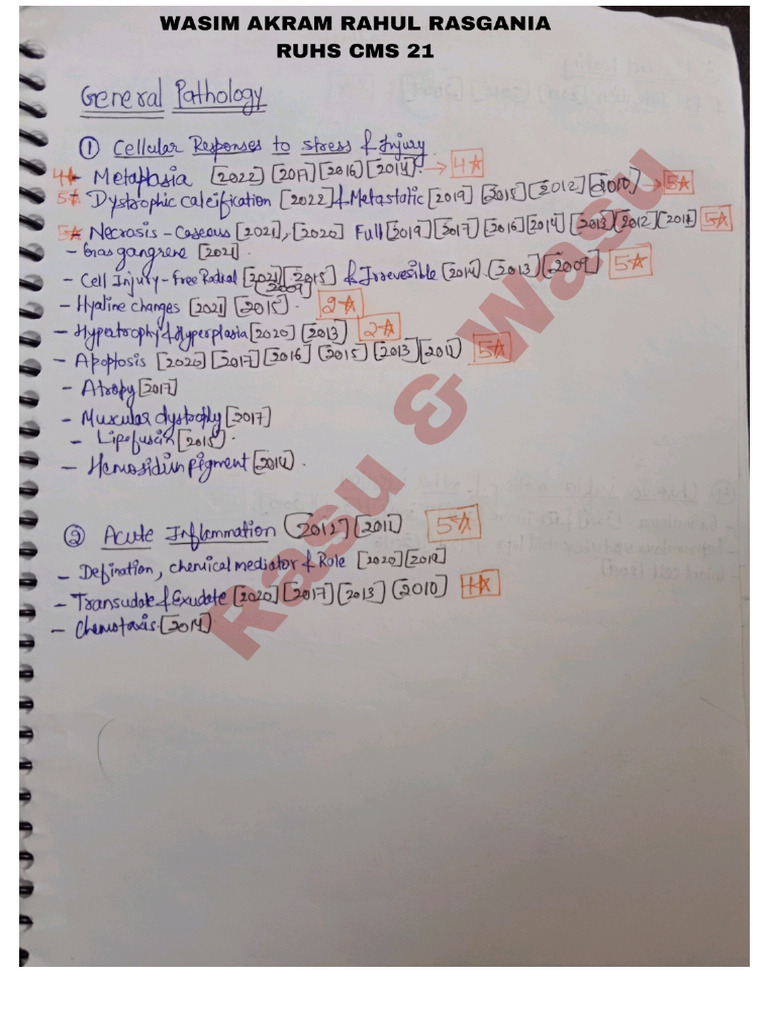 WASIM AKRAM RAHUL RASGANIA
RUHS CMS 21
General Pathology
① Cellular Responses to stress & Injury
4* - Metaplasia [2022] [2017] [2016] [2014] → 4☆
5* Dystrophic calcification [2022] & Metastatic [2019] [2015] [2012] [2010] → 5☆
5* Necrosis - Caseous [2021], [2020] Full [2019] [2017] [2016] [2014] [2013] [2012] [2011] 5☆
- Gas gangrene [2021].
- Cell Injury - Free Radial [2021] [2015] & Irrevesible [2014] [2013] [2009] 5☆
[2009]
- Hyaline changes [2021] [2015]. 2☆
- Hypertrophy & Hyperplasia [2020] [2013] 2☆
- Apoptosis [2020] [2017] [2016] [2015] [2013] [2011] 5☆
- Atropy [2017]
- Muscular dystrophy [2017]
- Lipofuscin [2015].
- Hemosidirin pigment [2014].
② Acute Inflammation [2012] [2011] 5☆
- Defination, chemical mediator & Role [2020] [2019]
- Transudate & Exudate [2020] [2017] [2013] [2010] 4☆
- Chemotaxis. [2014]
Rasu & Wasu